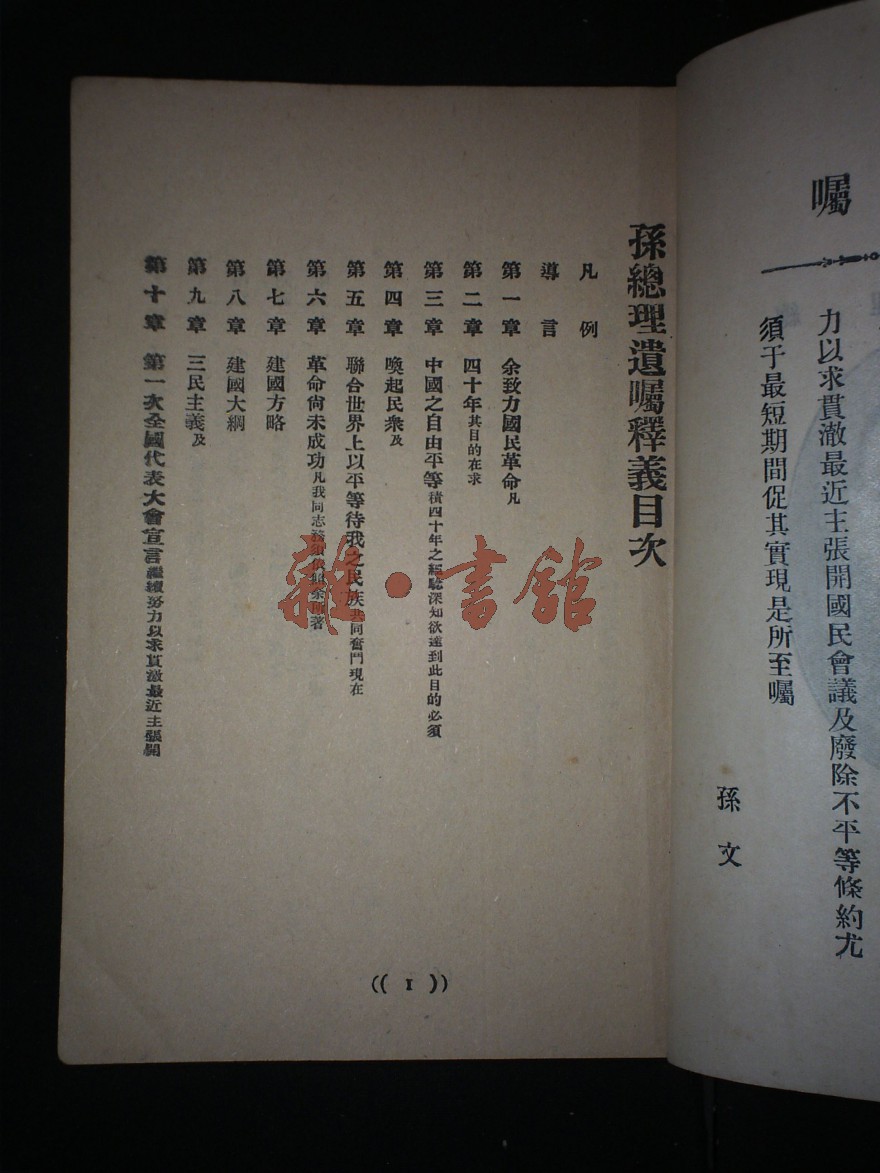 囑
力以求貫澈最近主張開國民會議及廢除不平等條約尤
須于最短期間促其實現是所至囑
孫文
孫總理遺囑釋義目次
凡例
導言
第一章 余致力國民革命凡
第二章 四十年其目的在求
第三章 中國之自由平等積四十年之經驗深知欲達到此目的必須
第四章 喚起民衆及
第五章 聯合世界上以平等待我之民族共同奮鬥現在
第六章 革命尙未成功凡我同志務須依照余所著
第七章 建國方略
第八章 建國大綱
第九章 三民主義及
第十章 第一次全國代表大會宣言繼續努力以求貫澈最近主張開
(( 1 ))
雜·書館